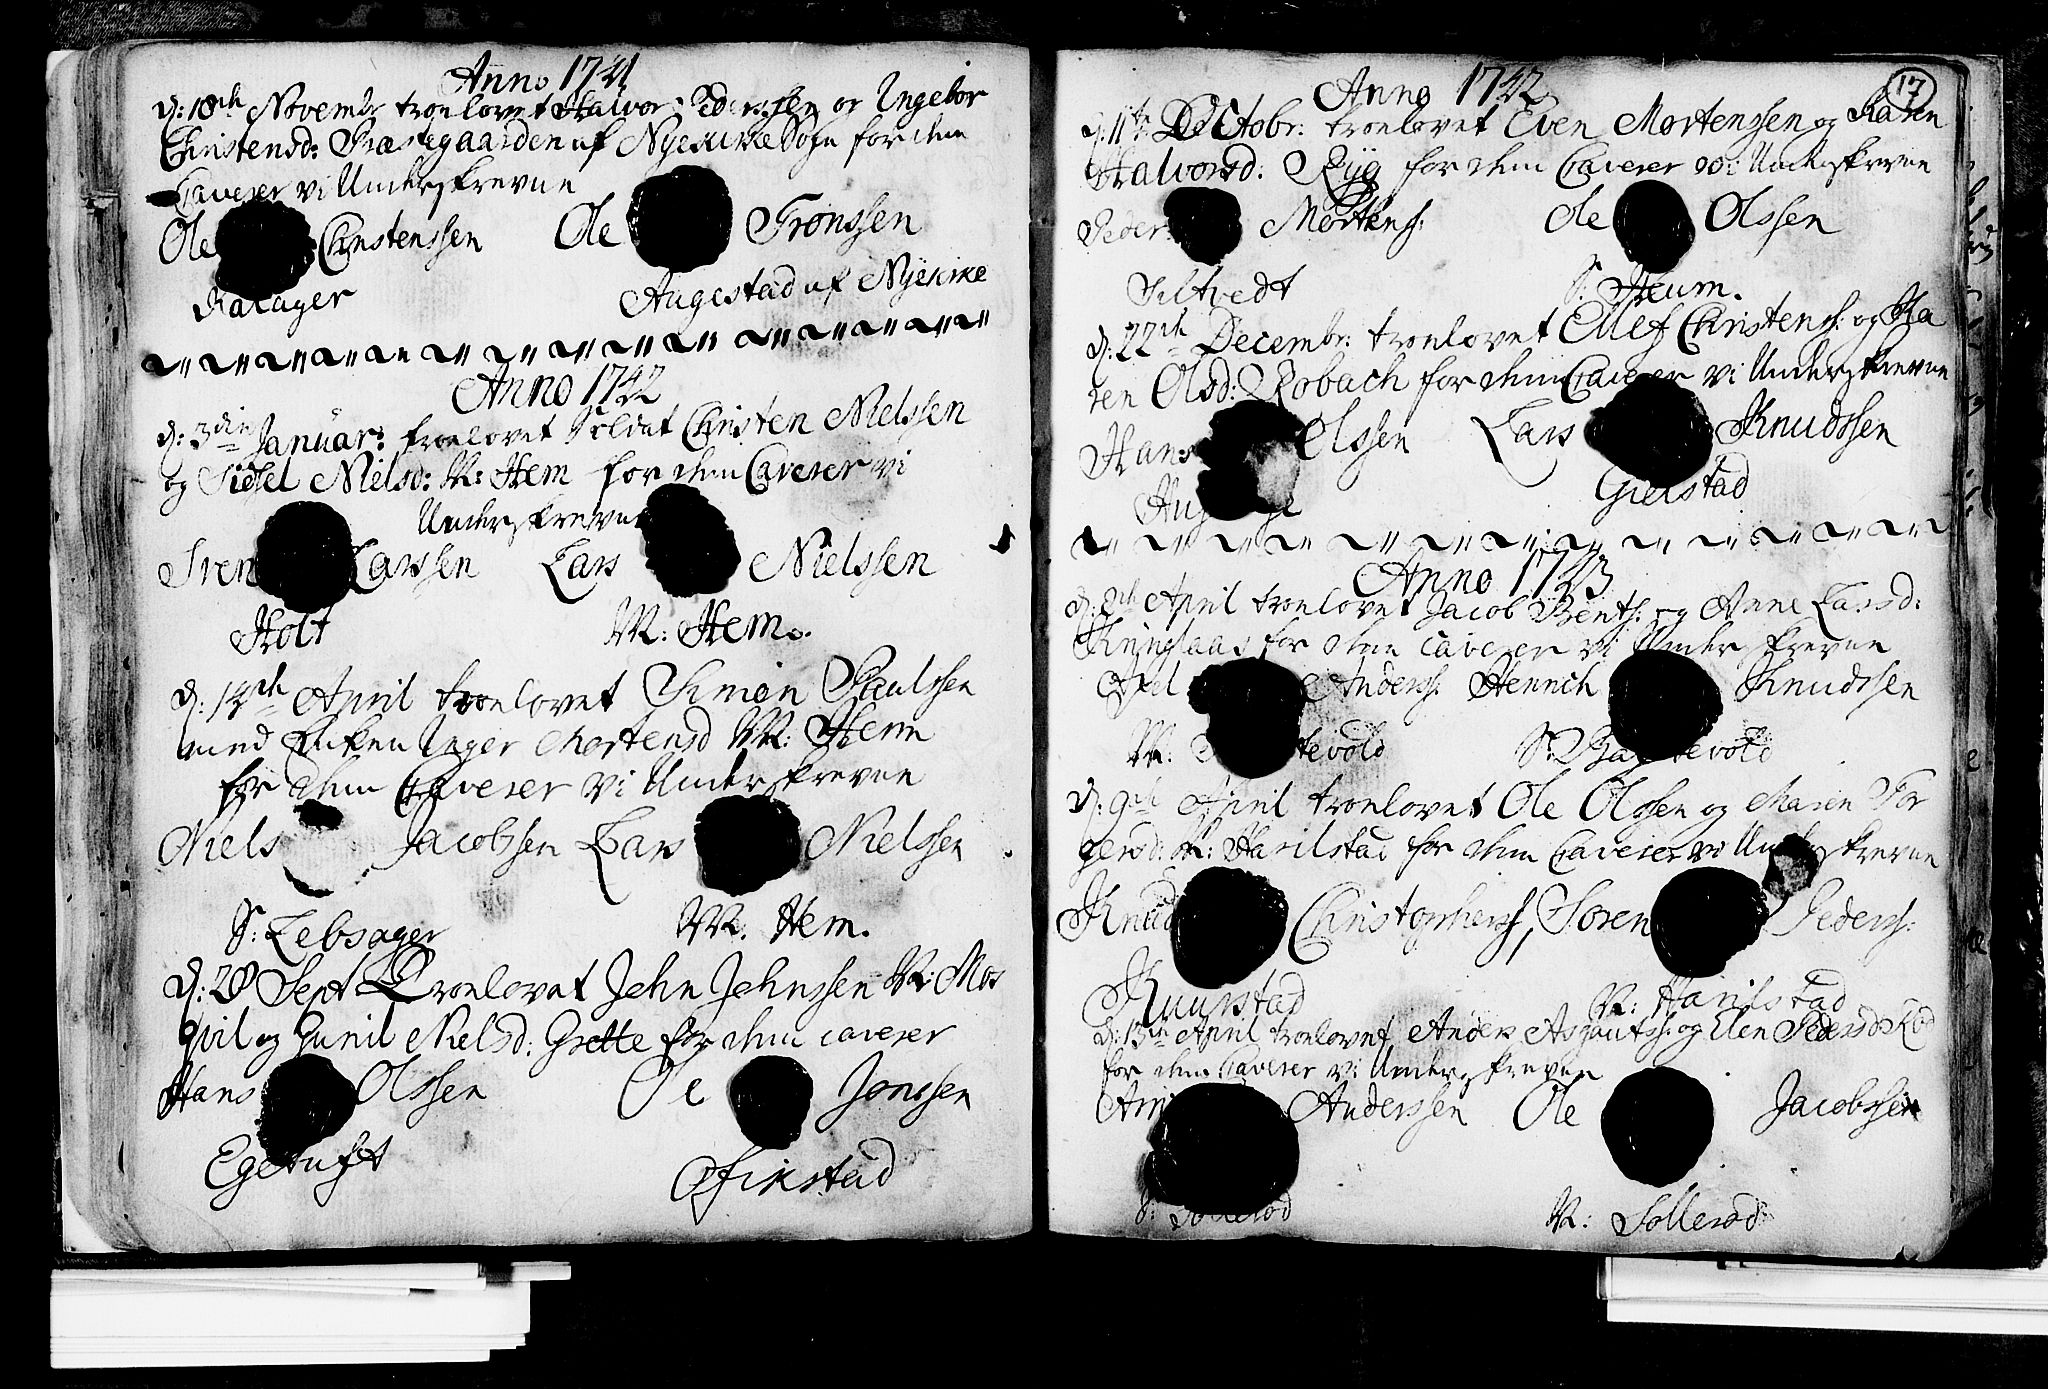 Anno 1741
d: 18de Novembr troelovet Halvor Pederssen og Ingebor
Christensd: Præstegaarden af Nyekirke Sogn for dem
Caverer vi Underskrevne
Ole Christenssen Ole Tronssen
Ramager Augestad af Nyekirke
Anno 1742
d: 3die Januar: troelovet Soldat Christen Nielssen
og Sidsel Nielsd: N: Hem for dem Caverer vi
Underskrevne
Sven Larssen Lars Nielssen
Holt N: Hem.
d: 14de April troelovet Simon Paulssen
med Enken Inger Mortensd N: Hem
for dem Caverer vi Underskrevne
Niels Jacobssen Lars Nielssen
S: Lebsager N. Hem.
d: 28 Sept Troelovet John Johnssen N: Mos
qvil og Gunil Nielsd: Grette for dem caverer
Hans Olssen Ole Jonssen
Egetuft Ofikstad
17
Anno 1742
d: 11te Octobr: troelovet Even Mortenssen og Karen
Halvorsd: Ryg for dem Caverer vi Underskrevne
Peder Mortens: Ole Olssen
Siltvedt S: Heum.
d: 22de Decembr: troelovet Ellef Christens: og Ka
ren Olsd: Robach for dem Caverer vi Underskrevne
Hans Olssen Lars Knudssen
Gielstad
Anno 1743
d: 2de April troelovet Jacob Bents: og Anne Larsd:
Kringlaas for dem caverer vi Underskrevne
Axel Anders: Henrich Knudssen
N: tevold S: Bag tevold
d: 9de April troelovet Ole Olssen og Maren Tor
gersd: N: Harilstad for dem Caverer vi Underskrevne
Knud Christophers: Soren Peders:
Ruurstad N: Harilstad
d: 13de April troelovet Anders Asgauts: og Elen Pedersd: Rød
for dem Caverer vi Underskrevne
Anderssen Ole Jacobssen
S: Sollerød N: Sollerød